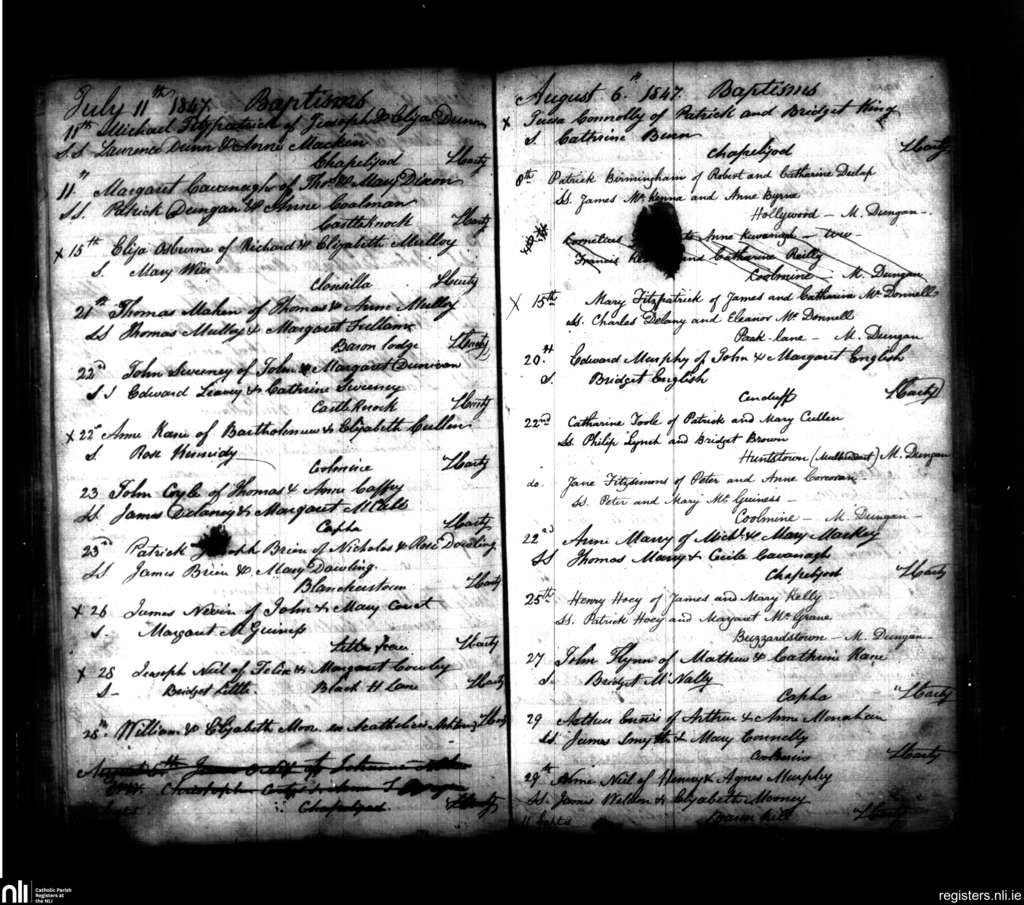 July 11th 1847. Baptisms
11th Michael Fitzpatrick of Joseph & Eliza Dunn
S.S. Lawrence Dunn & Anne Macken
Chapelizod Harty
11th Margaret Cavenagh of Thos. & Mary Dixon
SS. Patrick Dungan & Anne Coolman
Castleknock Harty
x 15th Eliza Osburne of Richard & Elizabeth Mulloy
S. Mary Wier
Clonsilla Harty
21st Thomas Maher of Thomas & Ann Mulloy
SS Thomas Mulloy & Margaret
Baron lodge Harty
22d John Sweeney of John & Margaret Duncan
SS Edward Leavy & Cathrine Sweeney
Castleknock Harty
x 22d Anne Kane of Bartholmew & Elizabeth Cullen
S Rose Kennidy
Coolmine Harty
23 John Coyle of Thomas & Anne Caffry
SS. James Delaney & Margaret McCabe
Capha Harty
23rd Patrick Joseph Brien of Nicholas & Rose Dowling.
SS James Brien & Mary Dowling.
Blanchardstown Harty
x 26 James Nevin of John & Mary
S. Margaret McGuiness
Harty
x 28 Joseph Neil of Felix & Margaret Cowley
S- Bridget Little. Black H Lane Harty
28th William & Elizabeth Moore Harty
August 6th James
Christopher & Anne
Chapelizod Harty
August 6th. 1847. Baptisms
x Teresa Connolly of Patrick and Bridget King
S. Cathrine Benn
Chapelizod Harty
8th Patrick Birmingham of Robert and Catharine Dunlap
SS. James McKenna and Anne Byrne
Hollywood - M. Dungan -
Cornelius Anne Kavanagh
Francis and Catharine Reilly
Coolmine - M. Dungan
x 15th Mary Fitzpatrick of James and Catharine McDonnell
SS. Charles Delany and Eleanor McDonnell
Park lane - M. Dungan
20th Edward Murphy of John & Margaret English
S. Bridget English
Harty
22nd Catharine Toole of Patrick and Mary Cullen
SS Philip Lynch and Bridget Brown
Huntstown (Mulhuddart) M. Dungan
do. Jane Fitzsimons of Peter and Anne Corcoran
SS. Peter and Mary McGuiness -
Coolmine - M. Dungan -
22nd Anne Marry of Michl. & Mary Mackey
SS Thomas Marry & Cecila Cavanagh
Chapelizod Harty
25th Henry Hoey of James and Mary Kelly -
SS. Patrick Hoey and Margaret McGrane
Buzzardstown - M. Dungan -
27 John Flynn of Mathew & Cathrine Kane
S. Bridget McNally
Capha Harty
29 Arthur Ennis of Arthur & Anne Monahan
SS. James Smyth & Mary Connelly
Coolmine Harty
29th Anne Neil of Henry & Agnes Murphy
SS. James Weldon & Elizabeth Mooney
Harty
nli Catholic Parish
Registers at
the NLI
registers.nli.ie